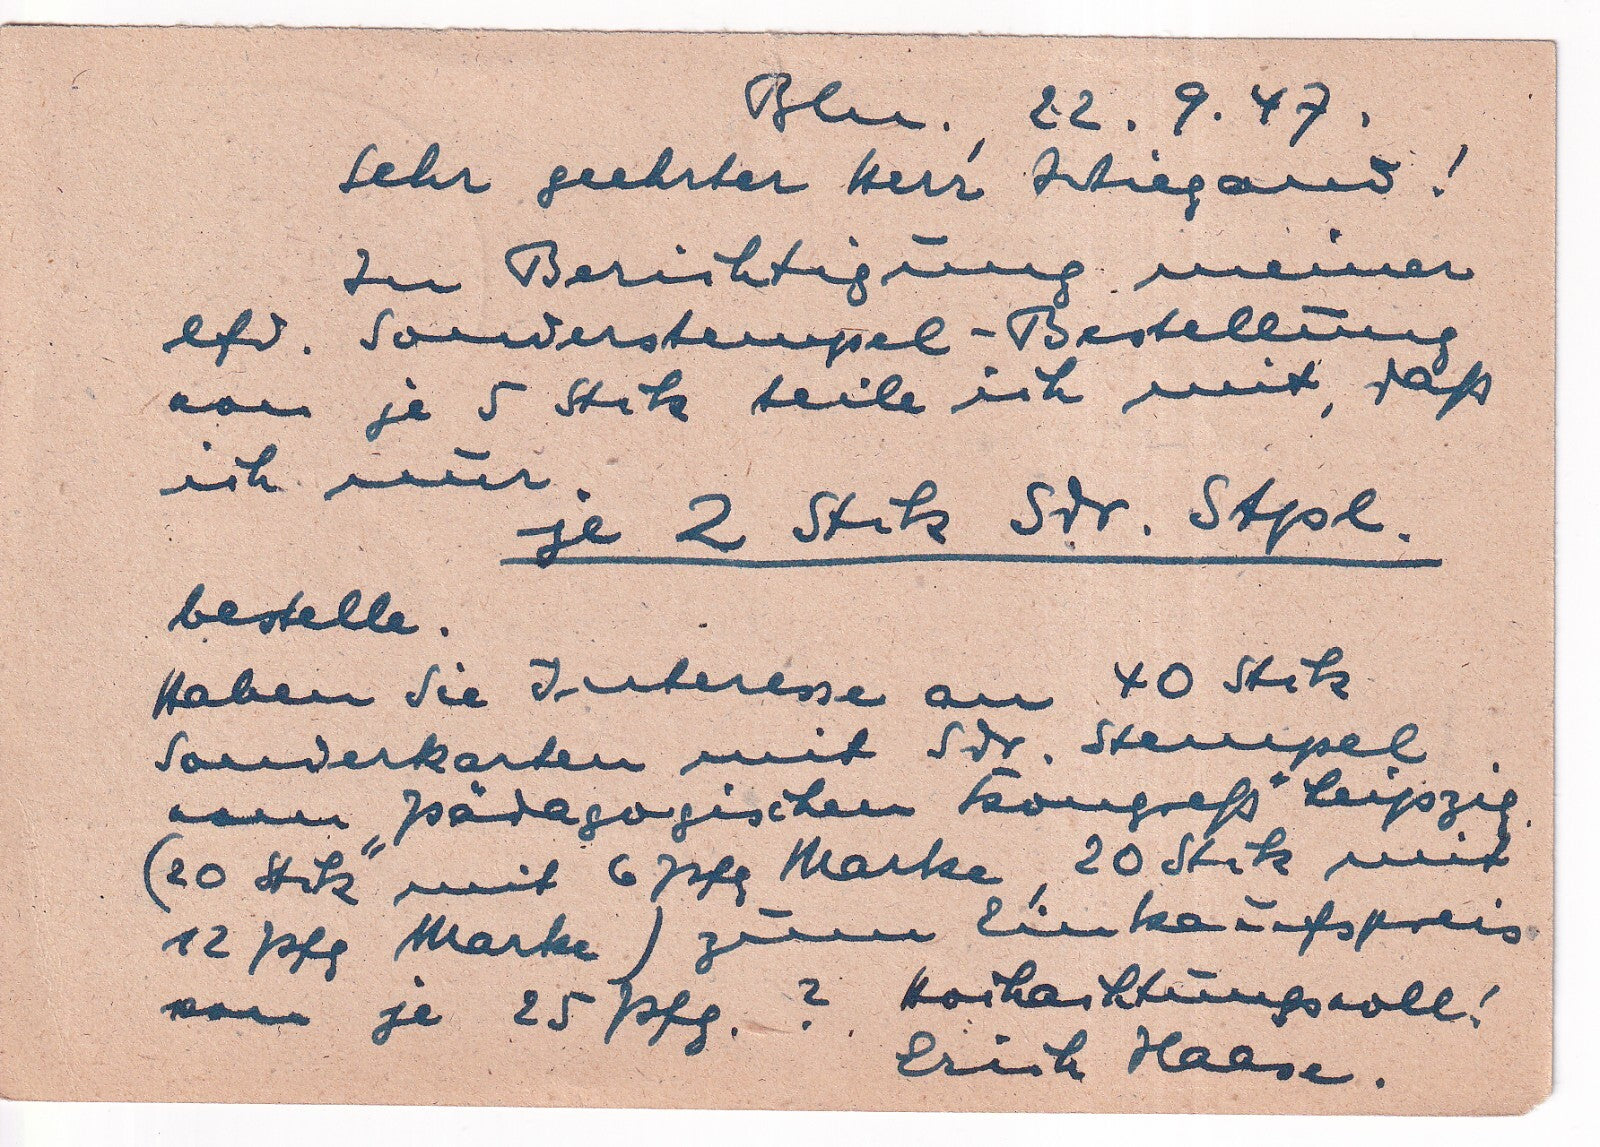 Bln., 22.9.47.
Sehr geehrter Herr Wiegand!
In Berichtigung meiner
lfd. Sonderstempel-Bestellung
von je 5 Stck teile ich mit, daß
ich nur
je 2 Stck Sdr. Stpl.
bestelle.
Haben Sie Interesse an 40 Stck
Sonderkarten mit Sdr. Stempel
vom "Pädagogischen Kongreß" Leipzig.
(20 Stck mit 6 Pfg Marke, 20 Stck mit
12 Pfg Marke) zum Einkaufspreis
von je 25 Pfg. ? Hochachtungsvoll!
Erich Haase.